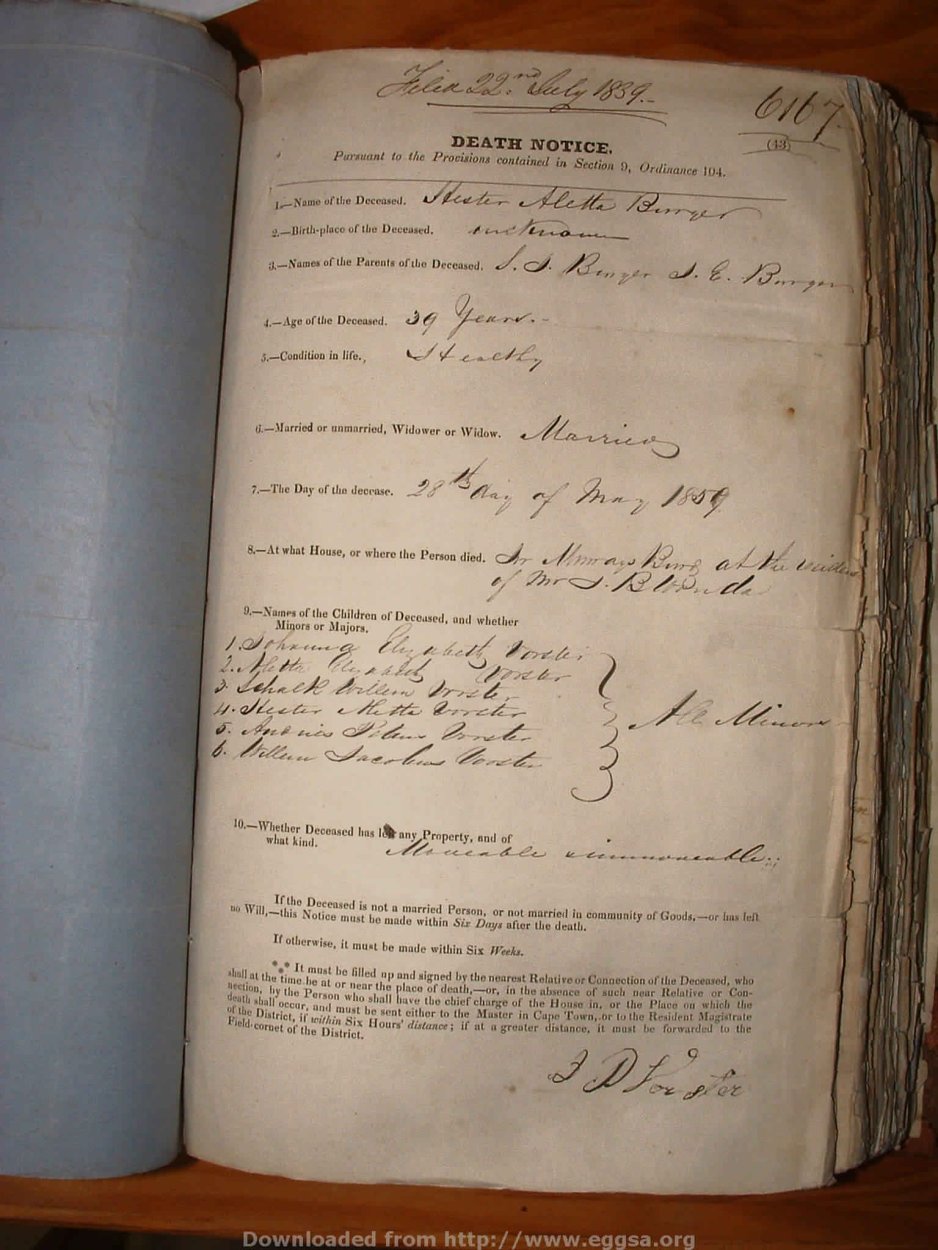 Filed 22nd July 1859.-
6167.
(43)
DEATH NOTICE.
Pursuant to the Provisions contained in Section 9, Ordinance 104.
1.—Name of the Deceased. Hester Aletta Burger
2.—Birth-place of the Deceased. unknown
3.—Names of the Parents of the Deceased. S. J. Burger J. E. Burger
4.—Age of the Deceased. 39 Years.-
5.—Condition in life., Healthy
6.—Married or unmarried, Widower or Widow. Married
7.—The Day of the decease. 28th day of May 1859
8.—At what House, or where the Person died. In Murraysburg at the
of Mr J.
9.—Names of the Children of Deceased, and whether
Minors or Majors.
1. Johanna Elizabeth Vorster
2. Aletta Elizabeth Vorster
3. Schalk Willem Vorster
4. Hester Aletta Vorster
All Minors
5. Andries Petrus Vorster
6. Willem Jacobus Vorster
10.—Whether Deceased has left any Property, and of
what kind. Moveable & immoveable.
If the Deceased is not a married Person, or not married in community of Goods,—or has left
no Will,—this Notice must be made within Six Days after the death.
If otherwise, it must be made within Six Weeks.
*** It must be filled up and signed by the nearest Relative or Connection of the Deceased, who
shall at the time be at or near the place of death,—or, in the absence of such near Relative or Con-
nection, by the Person who shall have the chief charge of the House in, or the Place on which the
death shall occur, and must be sent either to the Master in Cape Town, or to the Resident Magistrate
of the District, if within Six Hours' distance; if at a greater distance, it must be forwarded to the
Field-cornet of the District.
J D Vorster
Downloaded from http://www.eggsa.org